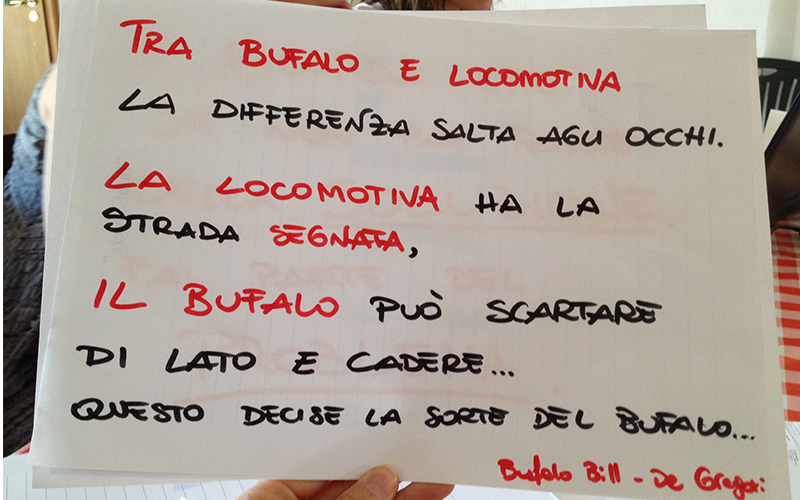 TRA BUFALO E LOCOMOTIVA
LA DIFFERENZA SALTA AGLI OCCHI.
LA LOCOMOTIVA HA LA
STRADA SEGNATA,
IL BUFALO PUÒ SCARTARE
DI LATO E CADERE...
QUESTO DECISE LA SORTE DEL BUFALO...
Bufalo Bill - De Gregori